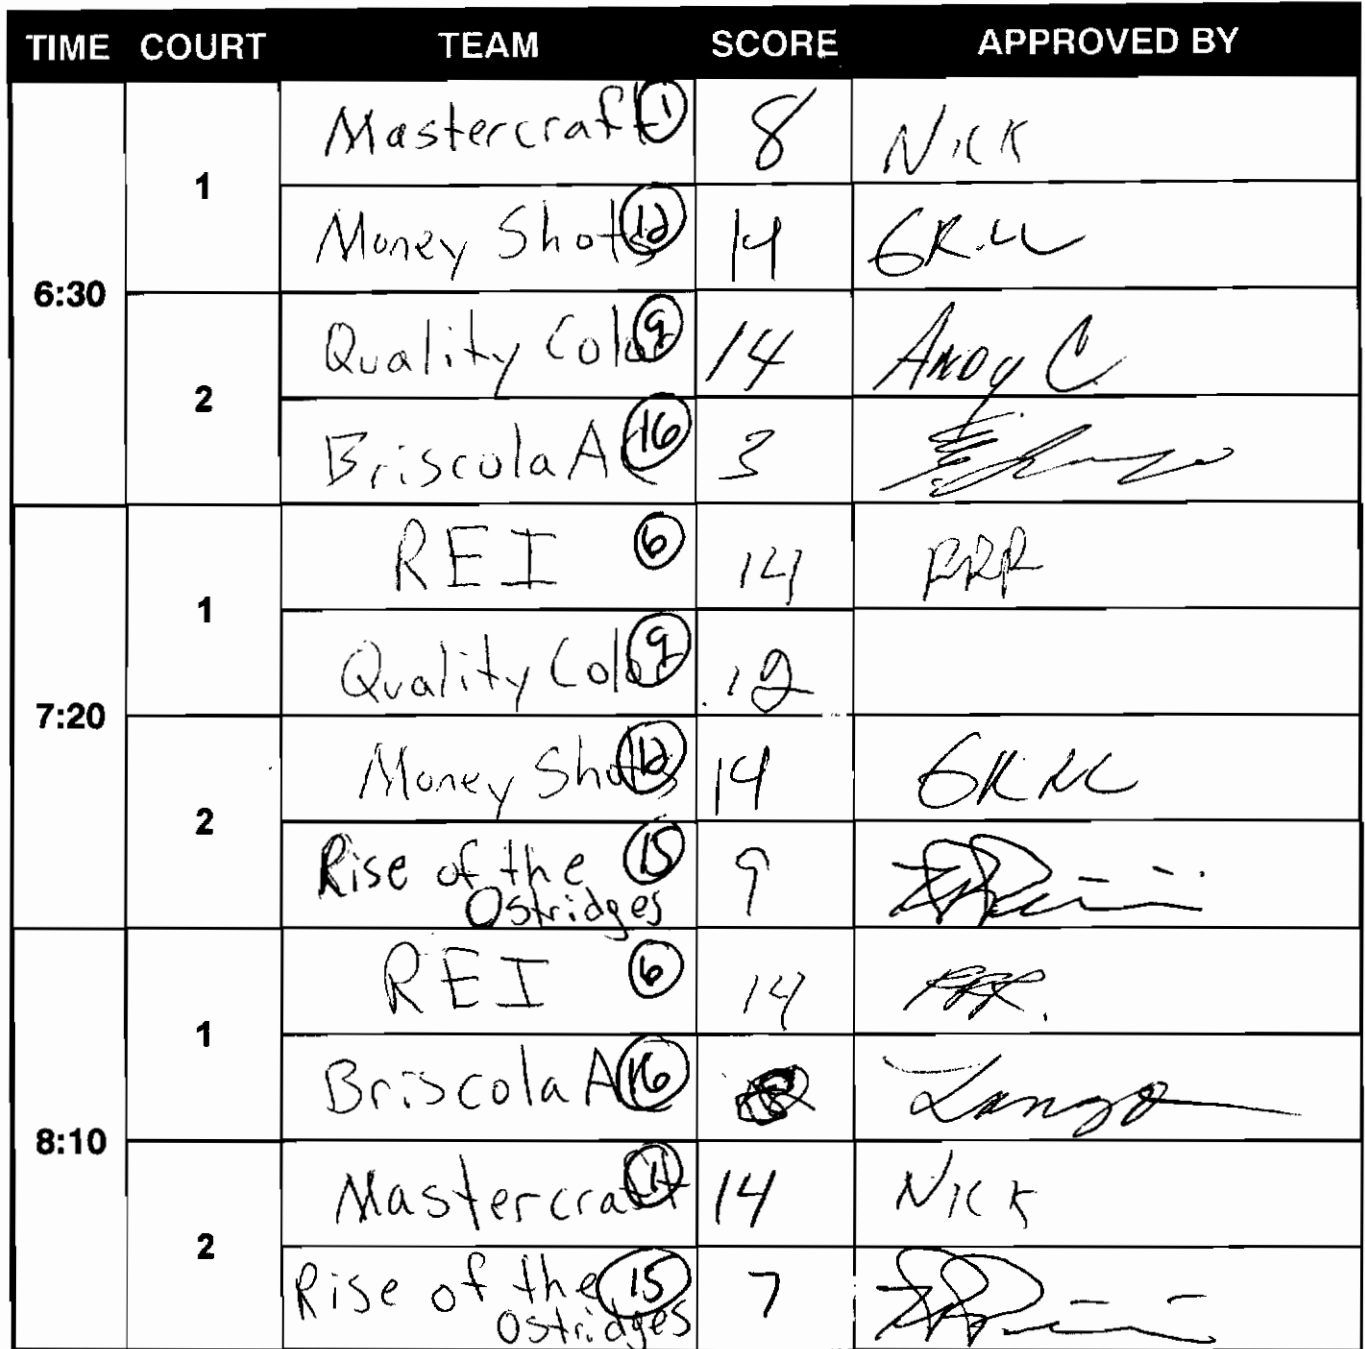 TIME COURT TEAM SCORE APPROVED BY
6:30 1 Mastercraft 1 8 Nick
Money Shots 12 14
2 Quality Color 9 14 Andy C
Briscola A 16 3
7:20 1 REI 6 14 RRR
Quality Color 9 12
2 Money Shots 12 14
Rise of the 15 9
Ostridges
8:10 1 REI 6 14
Briscola A 16
2 Mastercraft 14 Nick
Rise of the 15 7
Ostridges